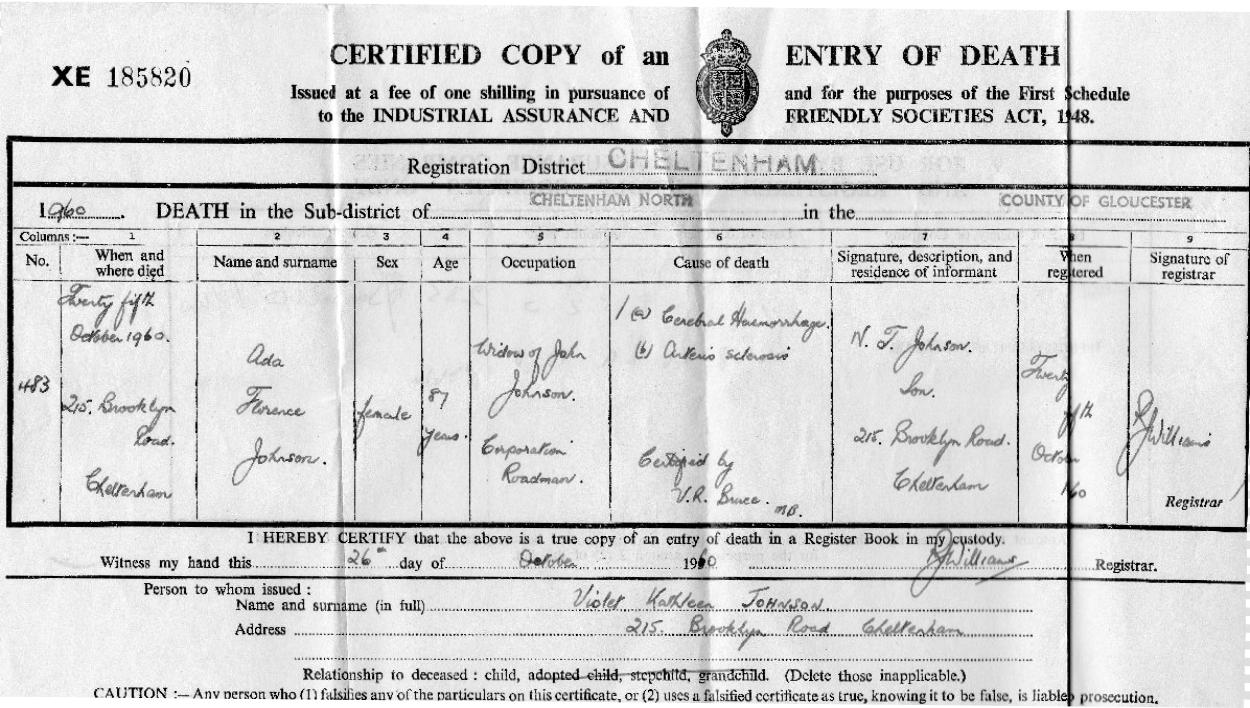 XE 185820
CERTIFIED COPY of an ENTRY OF DEATH
Issued at a fee of one shilling in pursuance of and for the purposes of the First Schedule
to the INDUSTRIAL ASSURANCE AND FRIENDLY SOCIETIES ACT, 1948.
Registration District CHELTENHAM
1960. DEATH in the Sub-district of CHELTENHAM NORTH in the COUNTY OF GLOUCESTER
Columns :— 1 2 3 4 5 6 7 8 9
No.
When and
where died
Name and surname
Sex
Age
Occupation
Cause of death
Signature, description, and
residence of informant
When
registered
Signature of
registrar
483
Twenty fifth
October 1960.
215. Brooklyn
Road.
Cheltenham
Ada
Florence
Johnson.
female
87
years.
Widow of John
Johnson.
Corporation
Roadman.
1 (a) Cerebral Haemorrhage.
(b) Arterio sclerosis
Certified by
V.R. Bruce. MB.
N. T. Johnson.
Son.
215. Brooklyn Road.
Cheltenham
Twenty
October
RJWilliams
Registrar
I HEREBY CERTIFY that the above is a true copy of an entry of death in a Register Book in my custody.
Witness my hand this 26th day of October 1960 RJWilliams Registrar.
Person to whom issued :
Name and surname (in full) Violet Kathleen JOHNSON
Address 215. Brooklyn Road Cheltenham
Relationship to deceased : child, adopted child, stepchild, grandchild. (Delete those inapplicable.)
CAUTION :— Any person who (1) falsifies any of the particulars on this certificate, or (2) uses a falsified certificate as true, knowing it to be false, is liable prosecution.